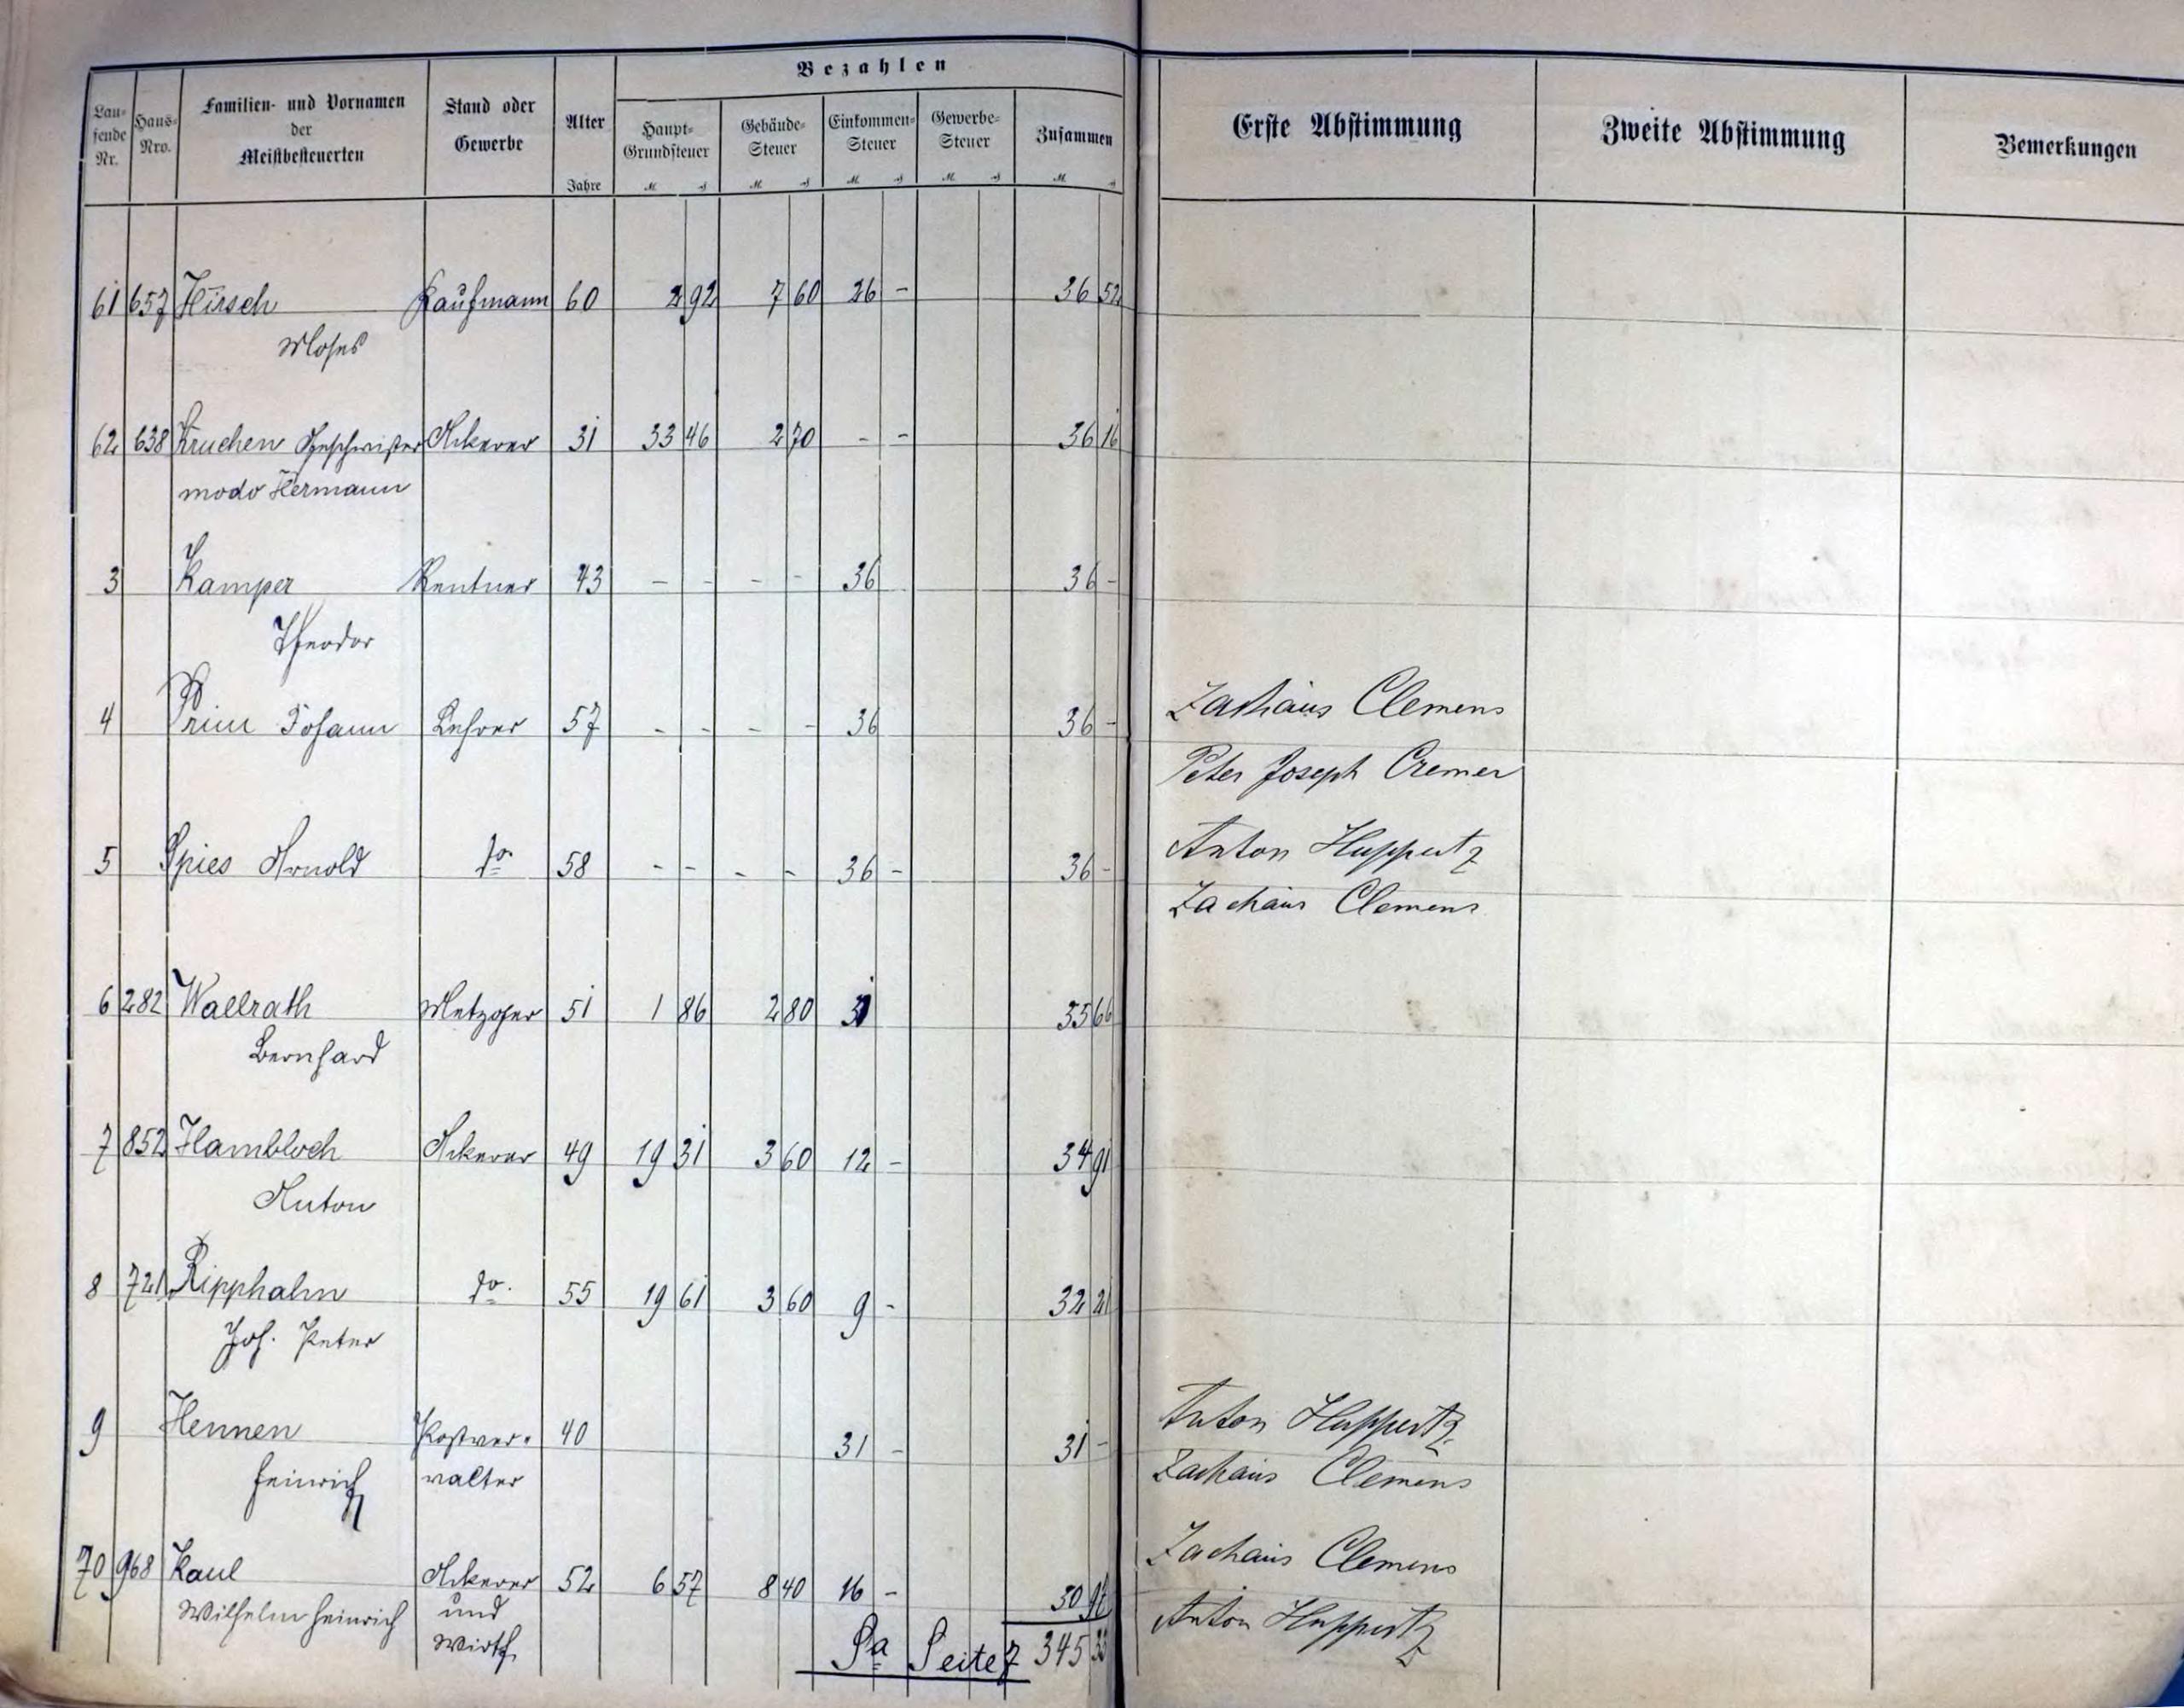 Bezahlen
Laufende Nr. Haus-Nro. Familien- und Vornamen der Meistbesteuerten Stand oder Gewerbe Alter Jahre Haupt-Grundsteuer M. ₰ Gebäude-Steuer M. ₰ Einkommen-Steuer M. ₰ Gewerbe-Steuer M. ₰ Zusammen M. ₰ Erste Abstimmung Zweite Abstimmung Bemerkungen
61 657 Hirsch Kaufmann 60 2 92 7 60 26 - 36 52
Moses
62 638 Kruchen Geschwister Ackerer 31 33 46 2 70 - - 36 16
modo Hermann
3 Kamper Rentner 43 - - - - 36 36 -
Theodor
4 Prim Johann Lehrer 57 - - - - 36 36 - Zachäus Clemens
Peter Joseph Cremer
5 Spies Arnold do. 58 - - - - 36 - 36 - Anton Huppertz
Zachäus Clemens
6 282 Wallrath Metzger 51 1 86 2 80 31 35 66
Bernhard
7 852 Hambloch Ackerer 49 19 31 3 60 12 - 34 91
Anton
8 721 Ripphahn do. 55 19 61 3 60 9 - 32 21
Joh. Peter
9 Hennen Postver- 40 31 - 31 - Anton Huppertz
Heinrich walter Zachäus Clemens
70 968 Kaul Ackerer 52 6 57 8 40 16 - 30 97 Zachäus Clemens
Wilhelm Heinrich und Anton Huppertz
Wirth
Sa Seite 7 345